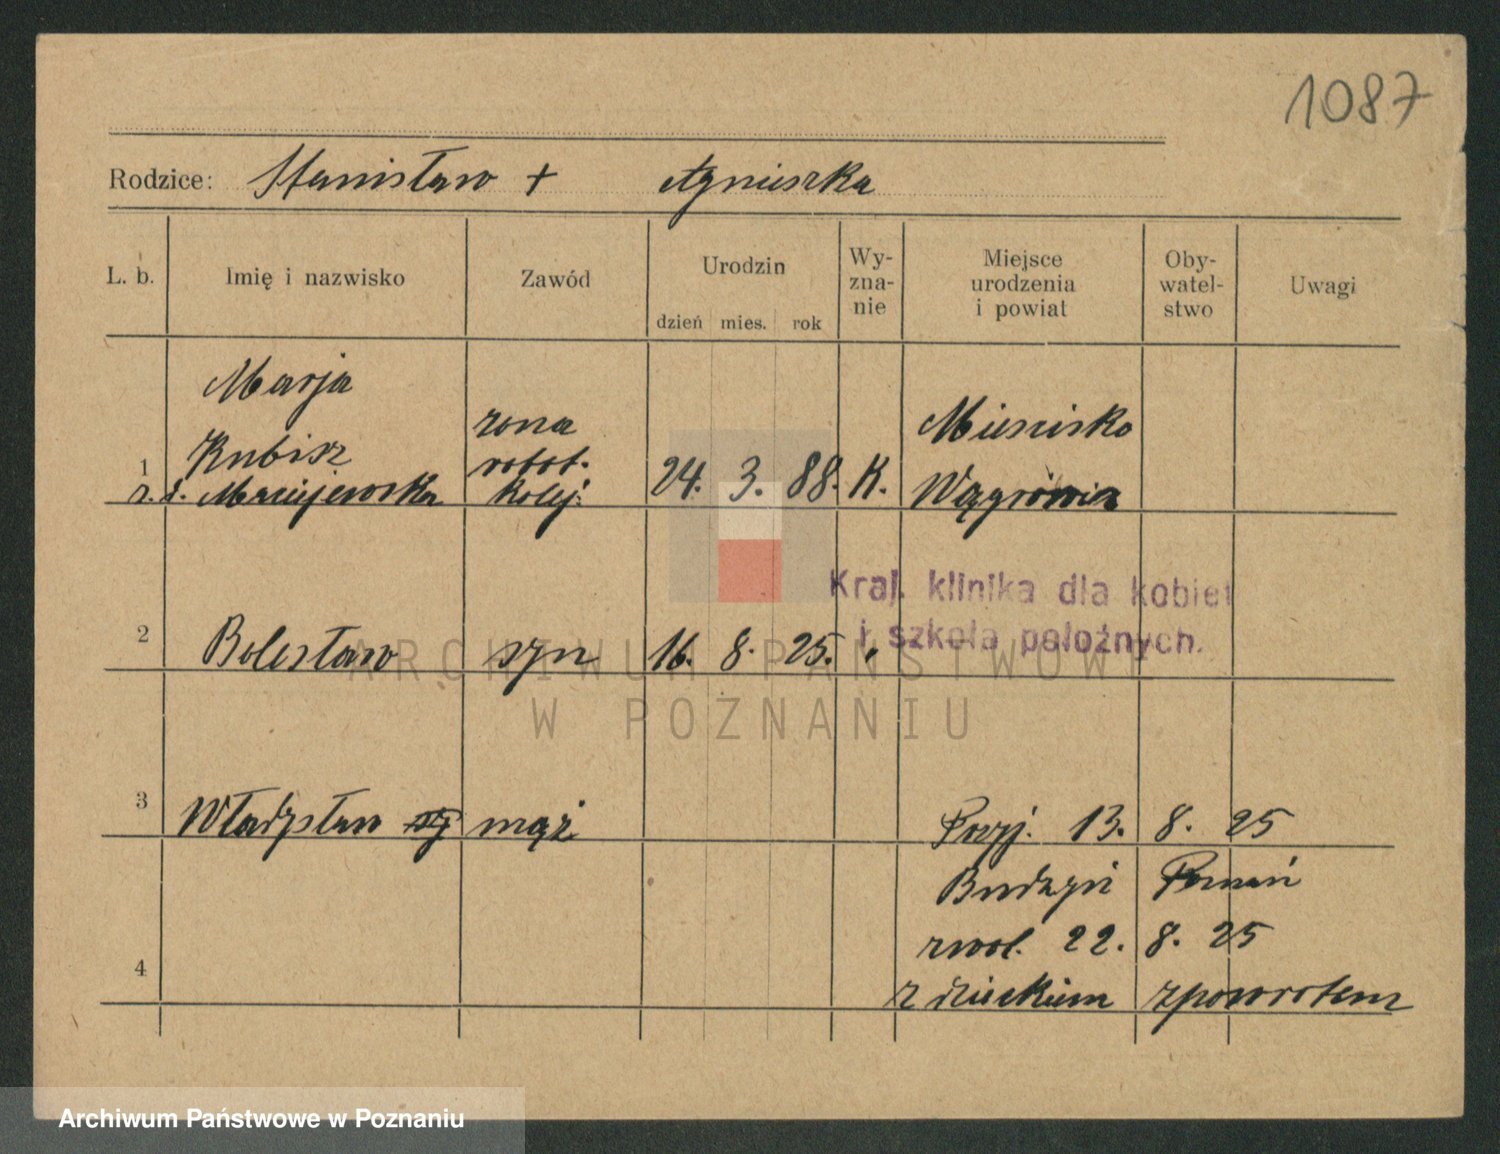 1087
Rodzice: Stanisław + Agnieszka
L. b.
Imię i nazwisko
Zawód
Urodzin
dzień mies. rok
Wy-
zna-
nie
Miejsce
urodzenia
i powiat
Oby-
watel-
stwo
Uwagi
Marja
Kubisz
1
z. d. Maciejewska
żona
robot.
kolej.
24. 3. 88. K.
Mieścisko
Wągrowiec
Kraj. klinika dla kobiet
i szkoła położnych.
2 Bolesław syn 16. 8. 25. "
ARCHIWUM PAŃSTWOWE
W POZNANIU
3 Władysław mąż
Przyj. 13. 8. 25
Budzyń Poznań
zwol. 22. 8. 25
4
z dzieckiem zpowrotem
Archiwum Państwowe w Poznaniu